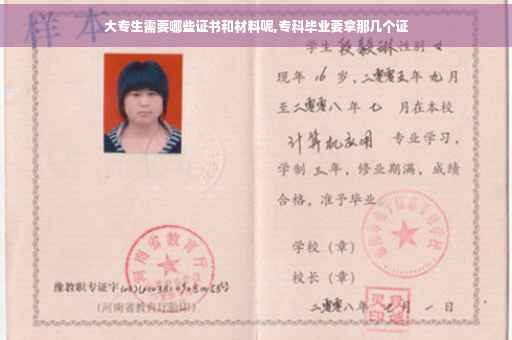 样本
大专生需要哪些证书和材料呢,专科毕业要拿那几个证
学生 段毅琳 性别 女
现年 16 岁，二零零五年 九月
至二零零八年 七 月在本校
计算机应用 专业学习，
学制 三年，修业期满，成绩
合格，准予毕业
学校（章）
校长（章）
河南省教育厅
豫教职专证字
（河南省教育厅验印）
二零零八年 七 月 一 日